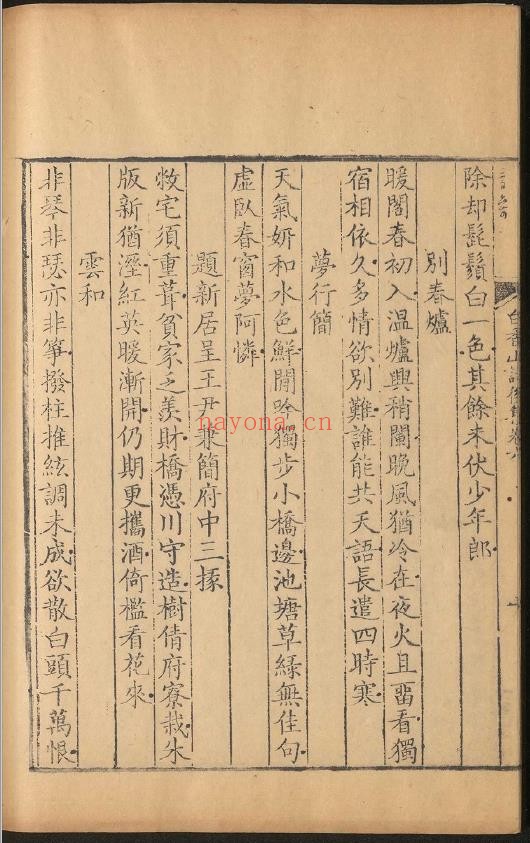 除却髭鬚白一色其餘未伏少年郎
別春爐
暖閣春初入温爐興稍闌晚風猶冷在夜火且畱看獨
宿相依久多情欲別難誰能共天語長遣四時寒
夢行簡
天氣妍和水色鮮閒吟獨步小橋邊池塘草綠無佳句
虛臥春窗夢阿憐
題新居呈王尹兼簡府中三掾
弊宅須重葺貧家乏羨財橋憑川守造樹倩府寮栽朱
版新猶溼紅英暖漸開仍期更攜酒倚檻看花來
雲和
非琴非瑟亦非箏撥柱推絃調未成欲散白頭千萬恨
nayona.cn